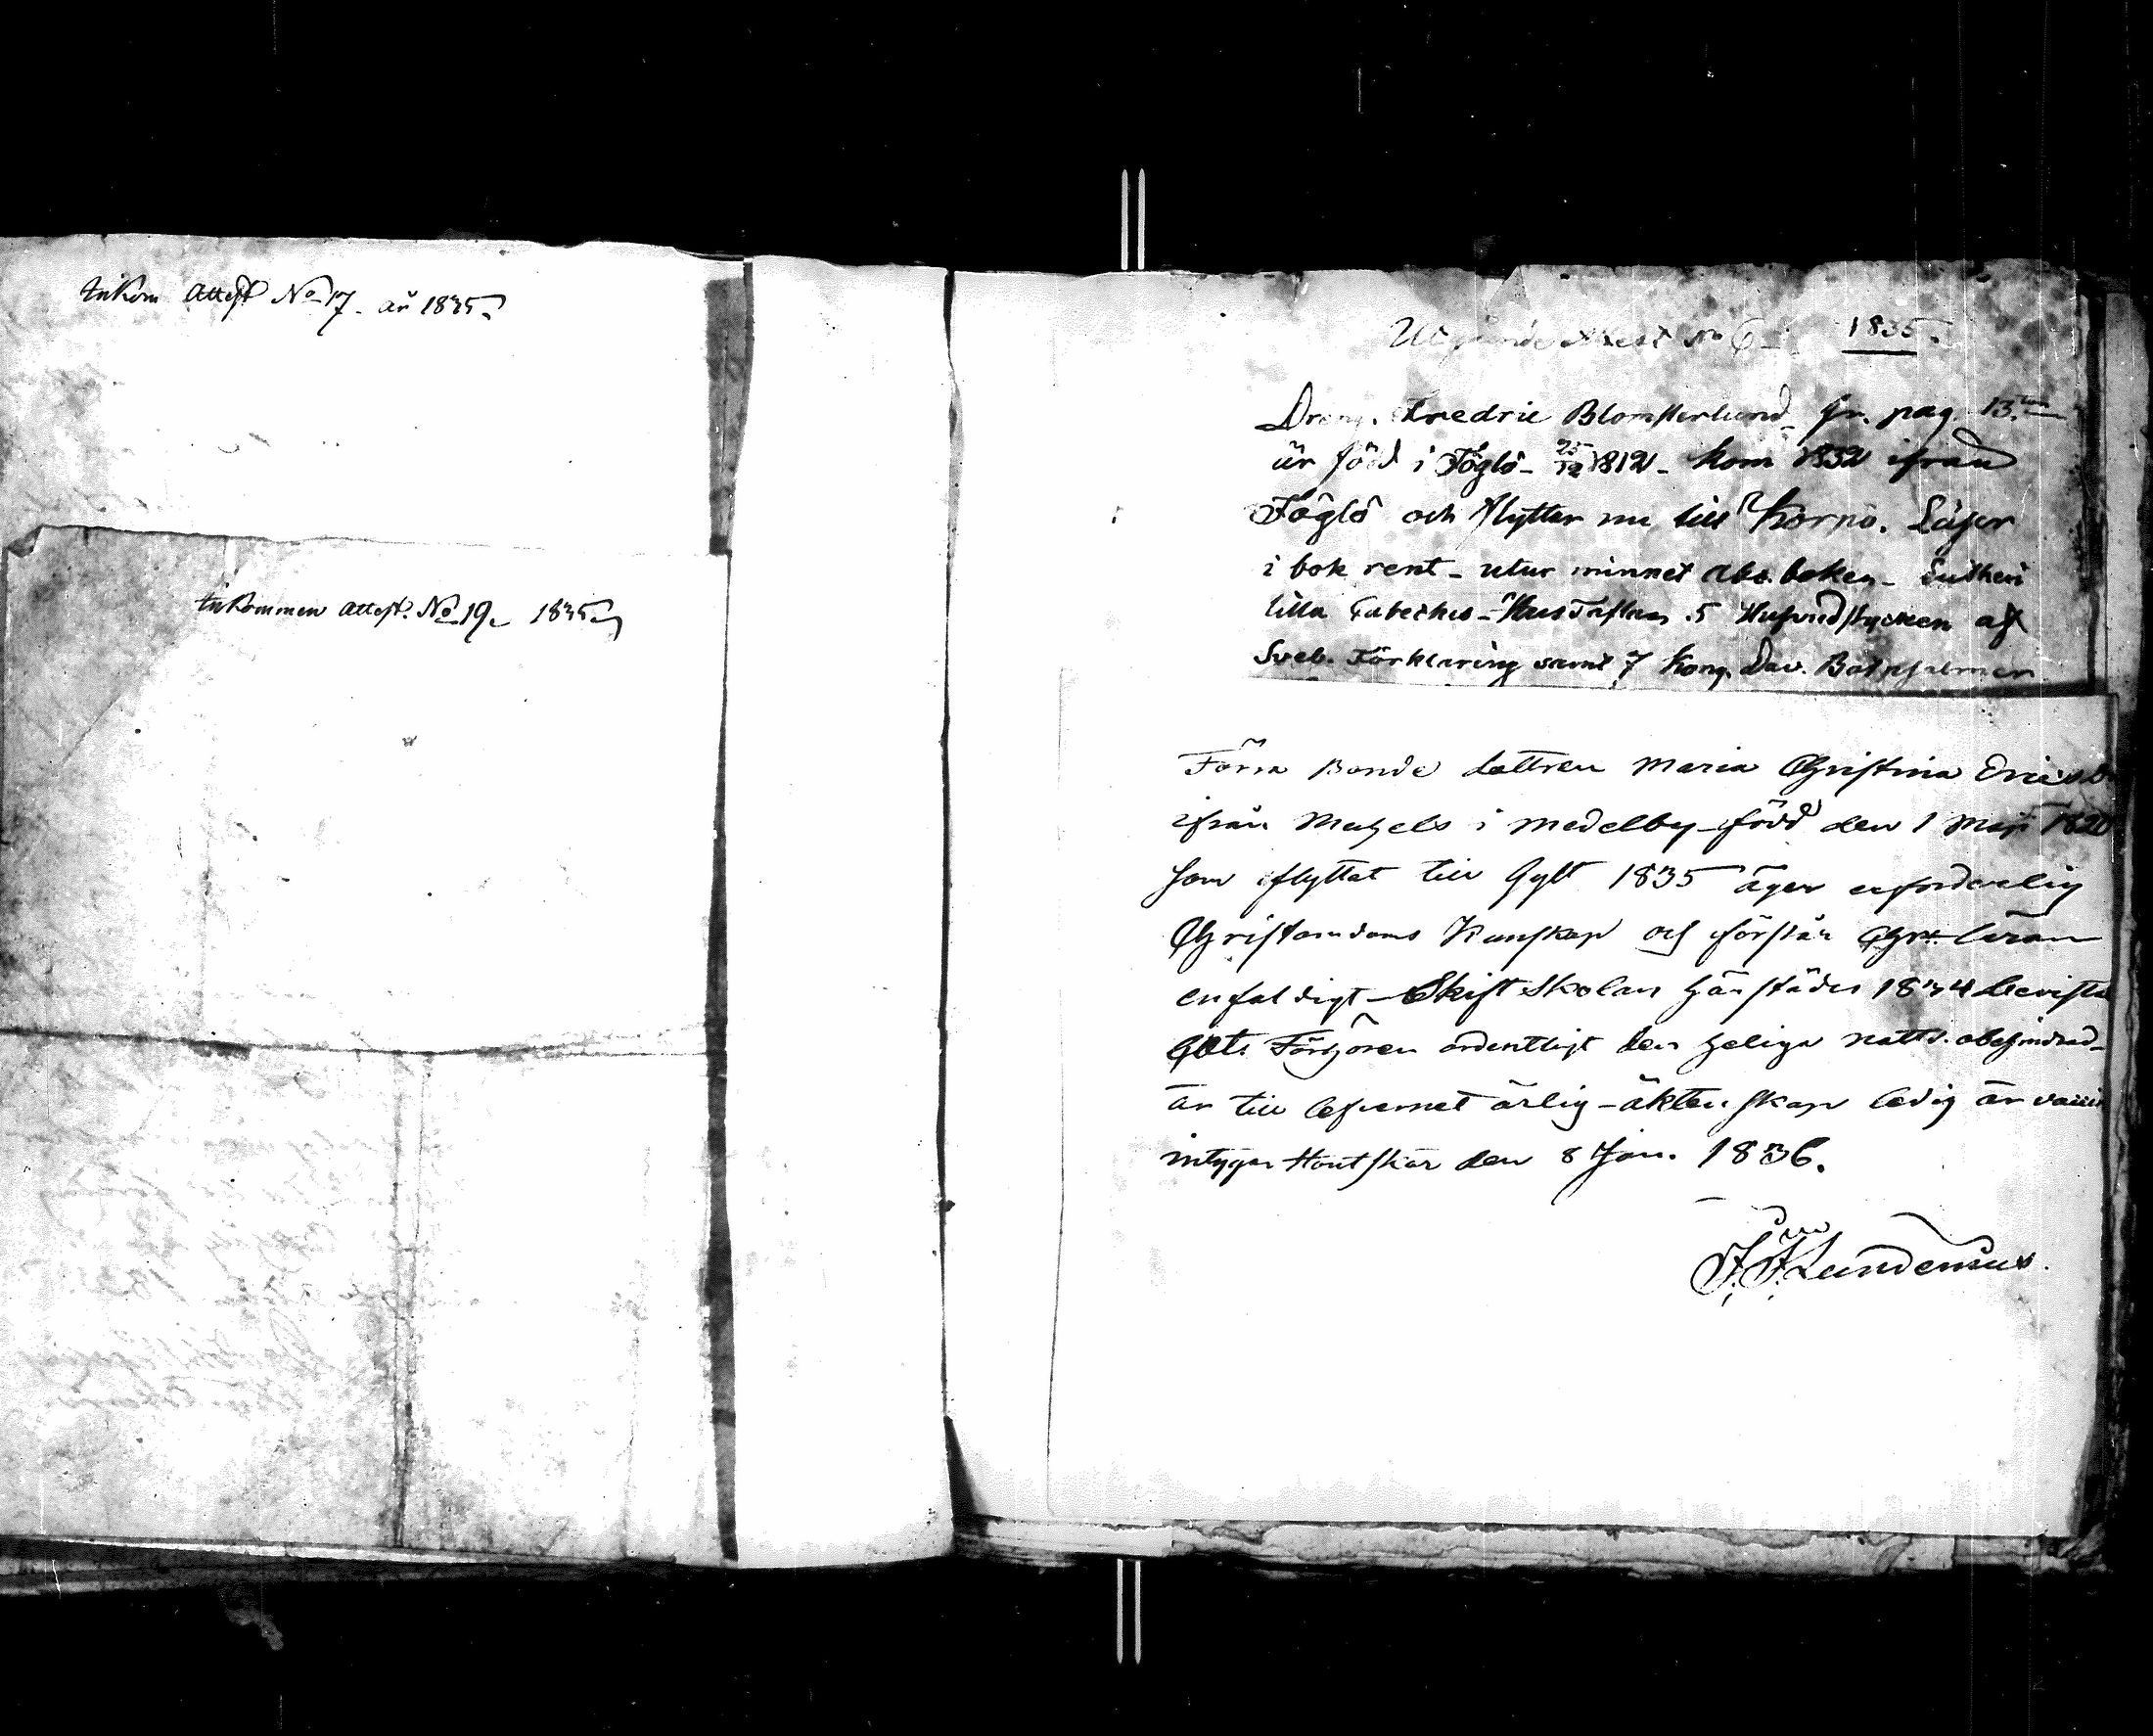 Inkom Attest No 17. år 1835.
Inkommen attest. No 19. 1835.
Utgående Attest No 6 1835.
Dreng. Fredric Blomsterlund fr. pag. 13
är född i Föglö 25/12 1812 - kom 1832 ifrån
Föglö och flytter nu till Korpo. Läser
i bok rent - utur minnet abc. boken - Lutheri
lilla Cateches - Hus Taflan . 5 Hufvudstycken af
Sveb. Förklaring samt 7 Kong. Dav. Botpsalmer
Förra Bonde dottren Maria Christina Ericsd.
ifrån Matzels i Medelby - född den 1 Maji 1820
som flyttat till Gylt 1835 äger erforderlig
Christendoms Kunskap och förstår Chr. läran
enfaldigt - Skift Skolan härstädes 1834 bevista
 Förhören ordentligt den heliga nattv. obehindrad -
är till lefvernet ärlig - äktenskap ledig är
intygar Houtskär den 8 Jan. 1836.
F. F. Lundenius.